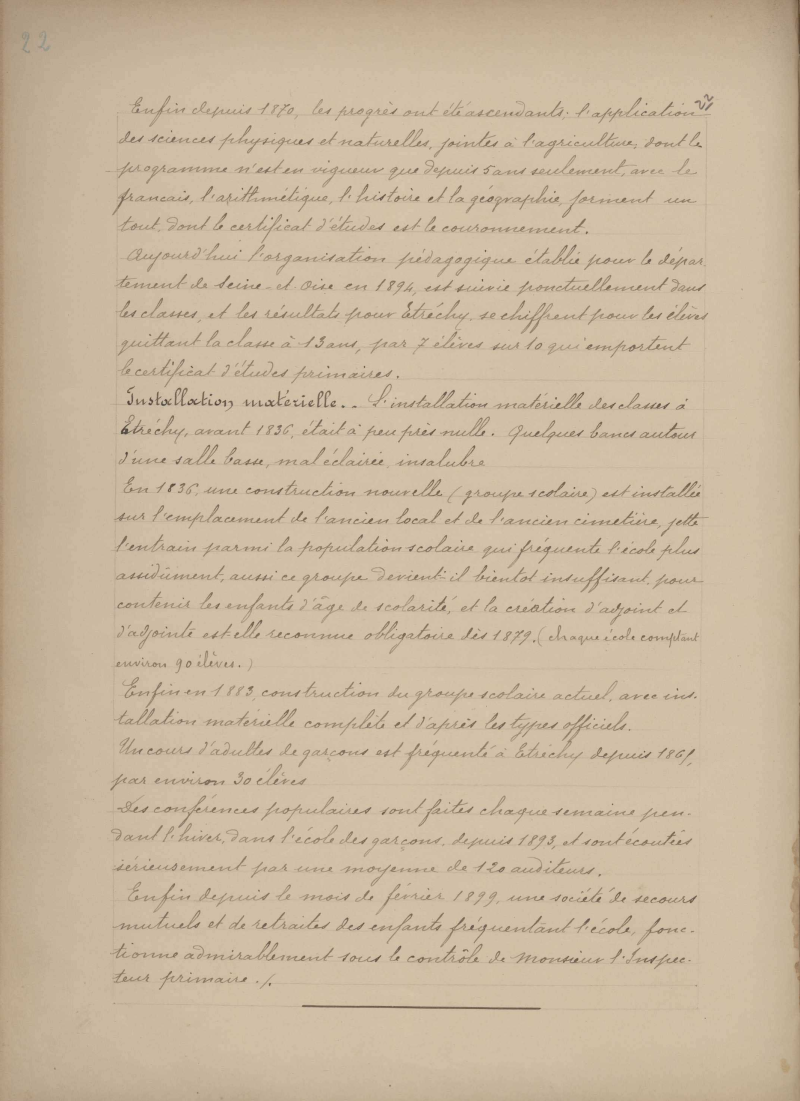 22
Enfin depuis 1870, les progrès ont été ascendants; l'application
des sciences physiques et naturelles, jointes à l'agriculture, dont le
programme n'est en vigueur que depuis 5 ans seulement, avec le
français, l'arithmétique, l'histoire et la géographie, forment un
tout, dont le certificat d'études est le couronnement.
Aujourd'hui l'organisation pédagogique établie pour le dépar-
tement de Seine-et-Oise en 1894, est suivie ponctuellement dans
les classes, et les résultats pour Etréchy, se chiffrent pour les élèves
quittant la classe à 13 ans, par 7 élèves sur 10 qui emportent
le certificat d'études primaires.
Installation matérielle. - L'installation matérielle des classes à
Etréchy, avant 1836, était à peu près nulle. Quelques bancs autour
d'une salle basse, mal éclairée, insalubre
En 1836, une construction nouvelle (groupe scolaire) est installée
sur l'emplacement de l'ancien local et de l'ancien cimetière, jette
l'entrain parmi la population scolaire qui fréquente l'école plus
assidûment, aussi ce groupe devient-il bientot insuffisant pour
contenir les enfants d'âge de scolarité, et la création d'adjoint et
d'adjointe est-elle reconnue obligatoire dès 1879. (chaque école comptant
environ 90 élèves.)
Enfin en 1883, construction du groupe scolaire actuel, avec ins-
tallation matérielle complète et d'après les types officiels.
Un cours d'adultes de garçons est fréquenté à Etréchy depuis 1861,
par environ 30 élèves
Des conférences populaires sont faites chaque semaine pen-
dant l'hiver, dans l'école des garçons, depuis 1893, et sont écoutées
sérieusement par une moyenne de 120 auditeurs.
Enfin depuis le mois de février 1899, une société de secours
mutuels et de retraites des enfants fréquentant l'école, fonc-
tionne admirablement sous le contrôle de Monsieur l'Inspec-
teur primaire ./.